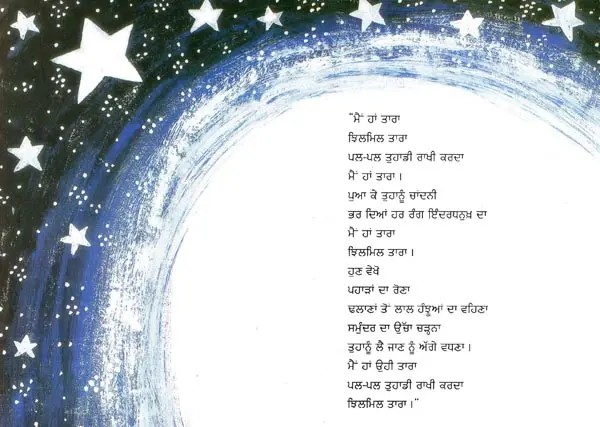 "ਮੈਂ ਹਾਂ ਤਾਰਾ
ਝਿਲਮਿਲ ਤਾਰਾ
ਪਲ-ਪਲ ਤੁਹਾਡੀ ਰਾਖੀ ਕਰਦਾ
ਮੈਂ ਹਾਂ ਤਾਰਾ।
ਪੁਆ ਕੇ ਤੁਹਾਨੂੰ ਚਾਂਦਨੀ
ਭਰ ਦਿਆਂ ਹਰ ਰੰਗ ਇੰਦਰਧਨੁਖ਼ ਦਾ
ਮੈਂ ਹਾਂ ਤਾਰਾ
ਝਿਲਮਿਲ ਤਾਰਾ।
ਹੁਣ ਵੇਖੋ
ਪਹਾੜਾਂ ਦਾ ਰੋਣਾ
ਢਲਾਣਾਂ ਤੋਂ ਲਾਲ ਹੰਝੂਆਂ ਦਾ ਵਹਿਣਾ
ਸਮੁੰਦਰ ਦਾ ਉੱਚਾ ਚੜ੍ਹਨਾ
ਤੁਹਾਨੂੰ ਲੈ ਜਾਣ ਨੂੰ ਅੱਗੇ ਵਧਣਾ।
ਮੈਂ ਹਾਂ ਉਹੀ ਤਾਰਾ
ਪਲ-ਪਲ ਤੁਹਾਡੀ ਰਾਖੀ ਕਰਦਾ
ਝਿਲਮਿਲ ਤਾਰਾ।"